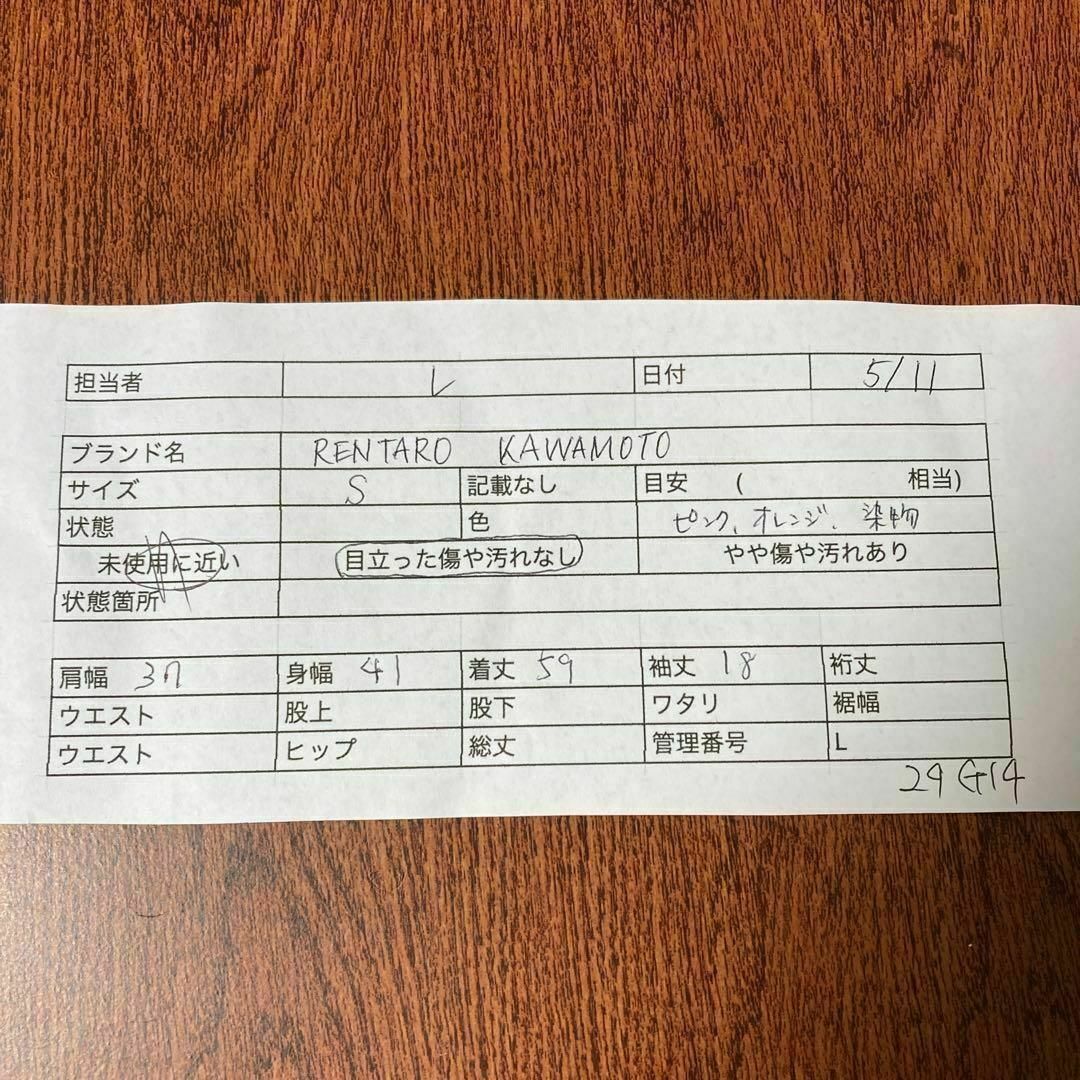 担当者 L 日付 5/11
ブランド名 RENTARO KAWAMOTO
サイズ S 記載なし 目安 ( 相当)
状態 色 ピンク、オレンジ、染物
未使用に近い 目立った傷や汚れなし やや傷や汚れあり
状態箇所
肩幅 37 身幅 41 着丈 59 袖丈 18 裄丈
ウエスト 股上 股下 ワタリ 裾幅
ウエスト ヒップ 総丈 管理番号 L
29G14